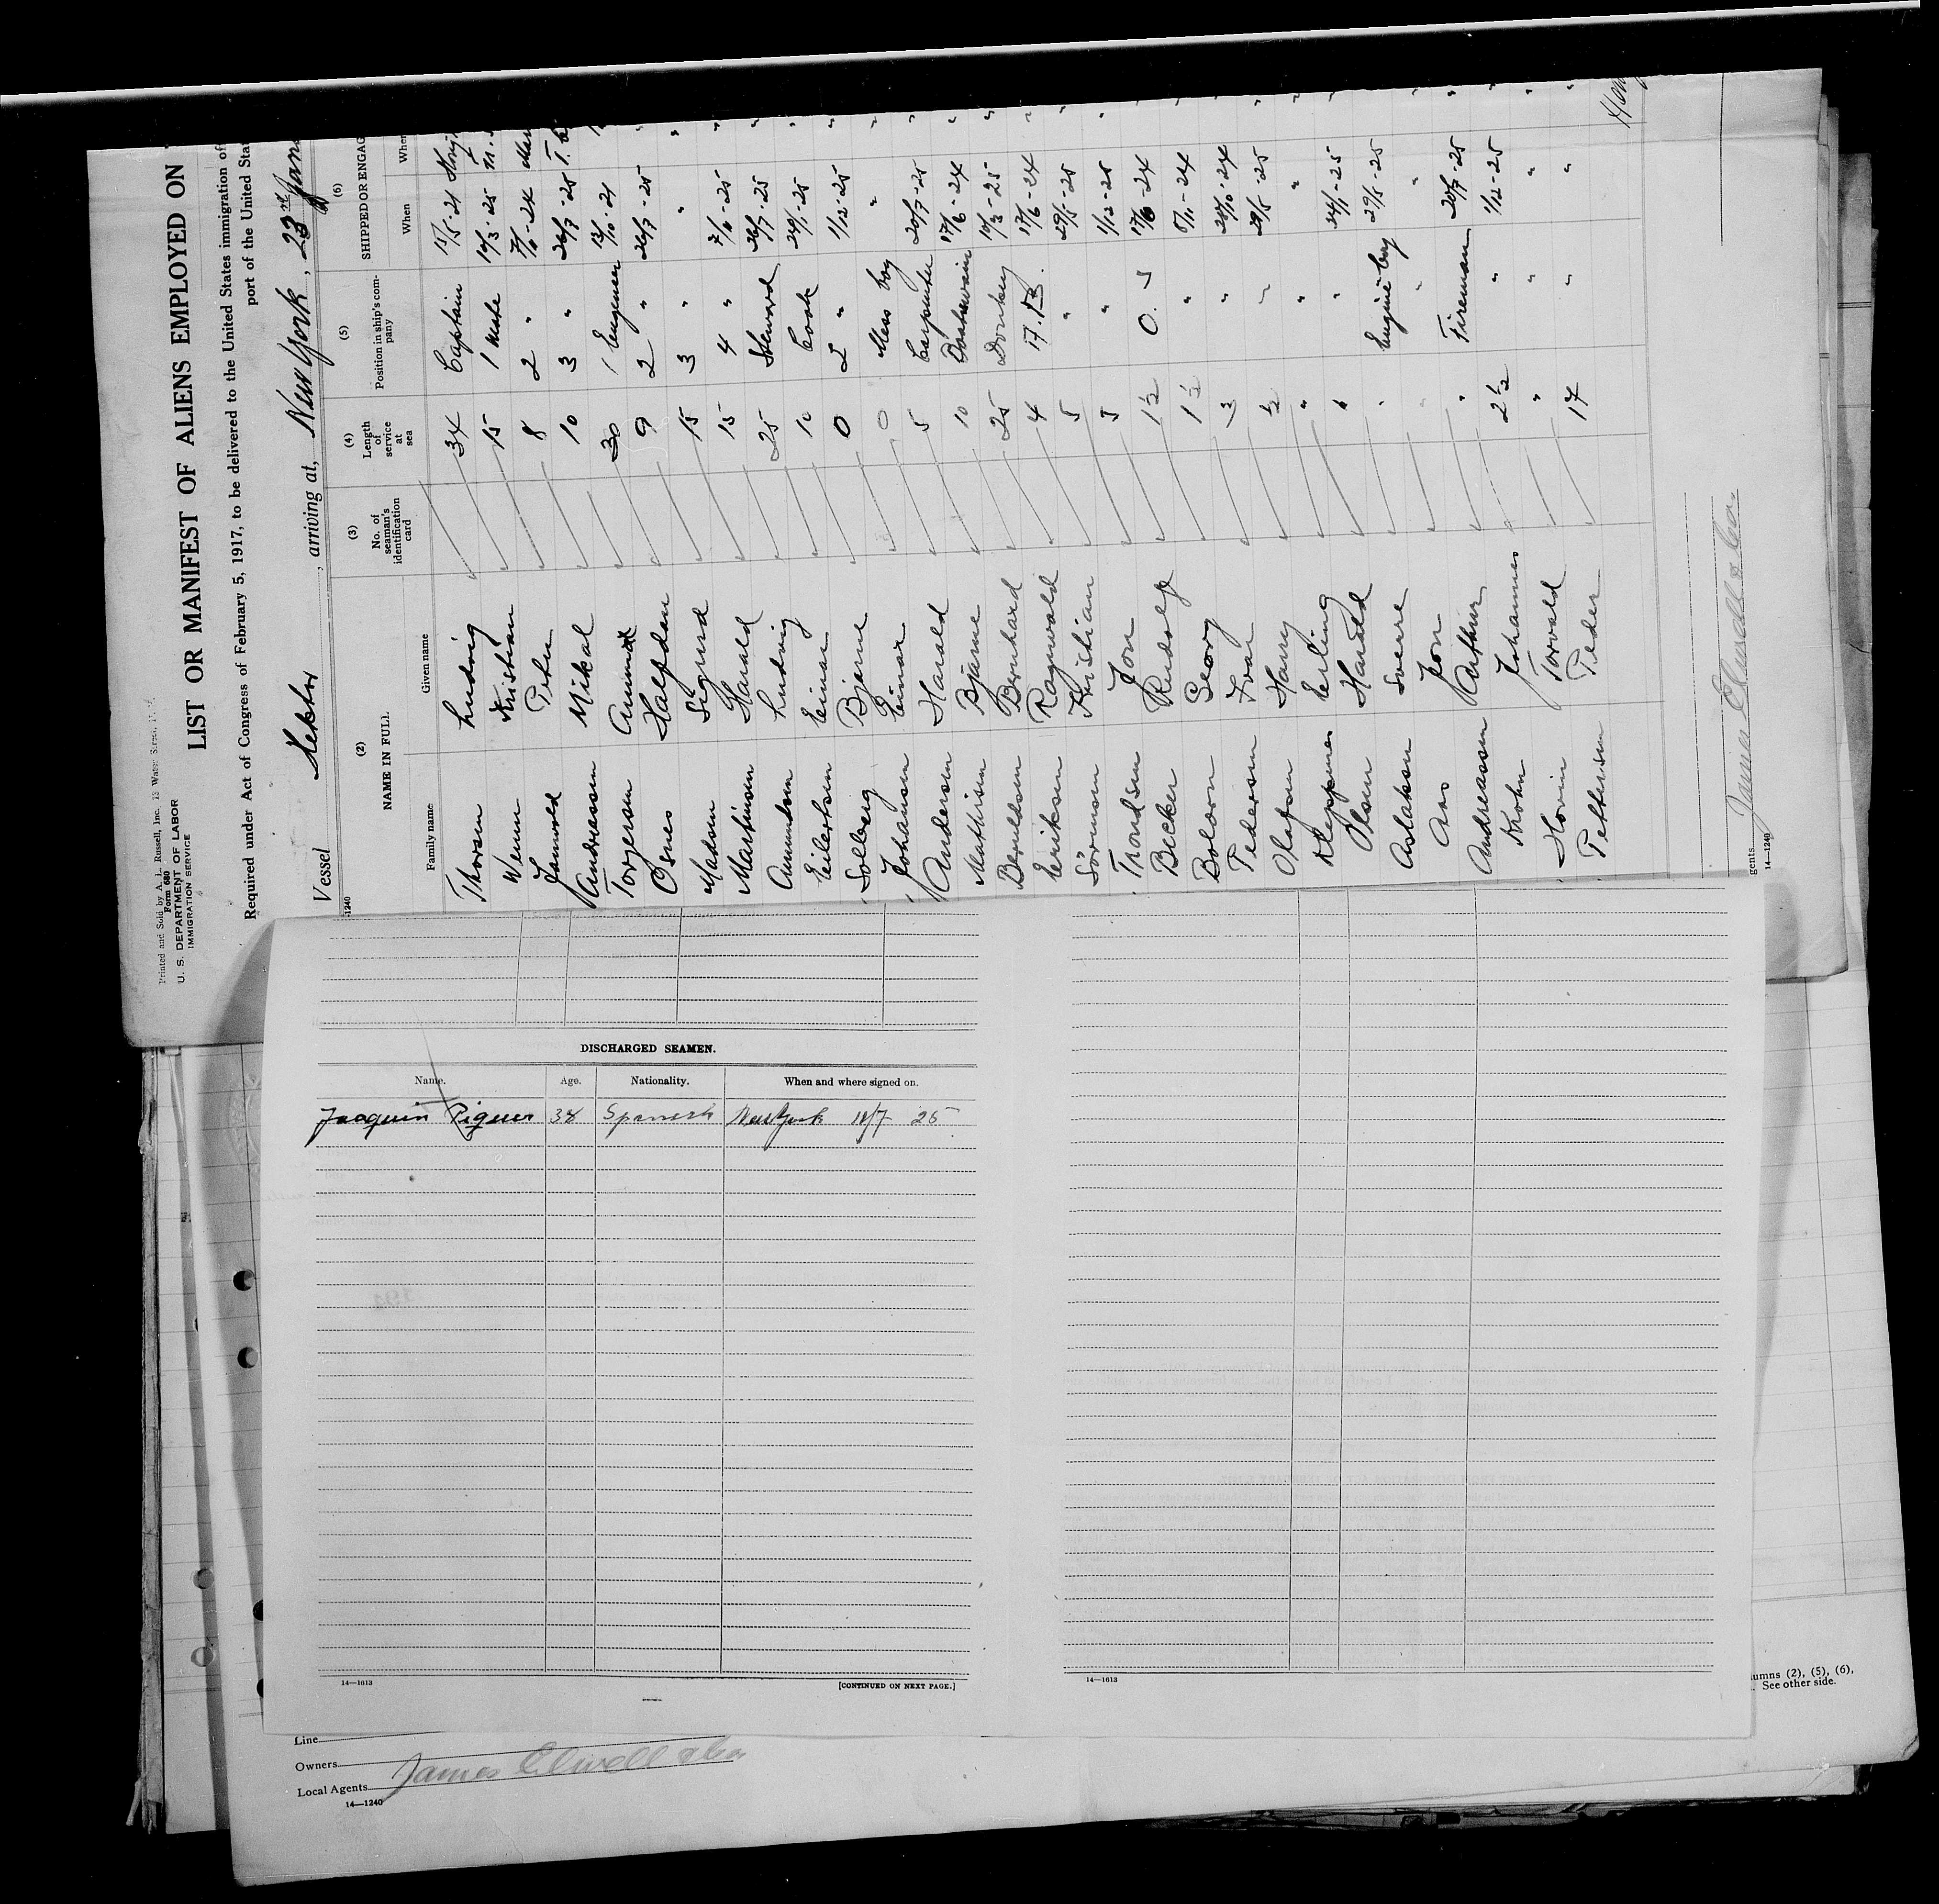 Printed and Sold by A. L. Russell, Inc.
Form 680
U. S. DEPARTMENT OF LABOR
IMMIGRATION SERVICE
LIST OR MANIFEST OF ALIENS EMPLOYED ON
Required under Act of Congress of February 5, 1917, to be delivered to the United States immigration of
port of the United Sta
Vessel Hektor, arriving at, New York, 23rd Jan
1240
(2) (3) (4) (5) (6)
NAME IN FULL No. of seaman's identification card Length of service at sea Position in ship's company SHIPPED OR ENGAG
Family name Given name When Wher
Thorsen Ludvig 34 Captain
Wenn Kristian 15 1 Mate 10/3-25
Peter 8 2 "
Andreassen Mikal 10 3 "
Torgersen 30 1 Engeneer
Osnes Halfdan 9 2 "
Madsen Sigurd 15 3 " "
Martinsen Harald 15 4 "
Amundsen Ludvig 25 Steward
Eilertsen Einar 10 Cook
Solberg Bjarne 0 2 " 1/12-25
Johansen Einar 0 Mess boy "
Andersen Harald 5 Carpenter 20/7-25
Mathisen Bjarne 10 Boatswain 17/6-24
Berntsen Bernhard 25 Donkey 10/3-25
Eriksen Ragnvald 4 17/6-24
Sörensen Kristian 5 " 29/5-25
Trondsen Jon 5 " 1/12-25
Becker Rudolf 1½ O. 17/6-24
Georg 1½ " -24
Pedersen Ivar 3 " -24
Olafsen Harry ½ 29/5-25
Kleppenes Erling " " "
Olsen Harald " " 24/1-25
Aslaksen Sverre Engine boy 29/5-25
Aas Jon " "
Andreassen Arthur " Fireman 20/7-25
Krohn Johannes 2½ " 1/12-25
Hovin Torvald " " "
Pettersen Peder 17 " "
gents James Elwell & Co.
14—1240
DISCHARGED SEAMEN.
Name. Age. Nationality. When and where signed on.
Joaquin Piquer 34 Spanish New York 18/7 25
14—1613 [CONTINUED ON NEXT PAGE.]
14—1613
umns (2), (5), (6),
See other side.
Line
Owners
Local Agents James Elwell & Co
14—1240